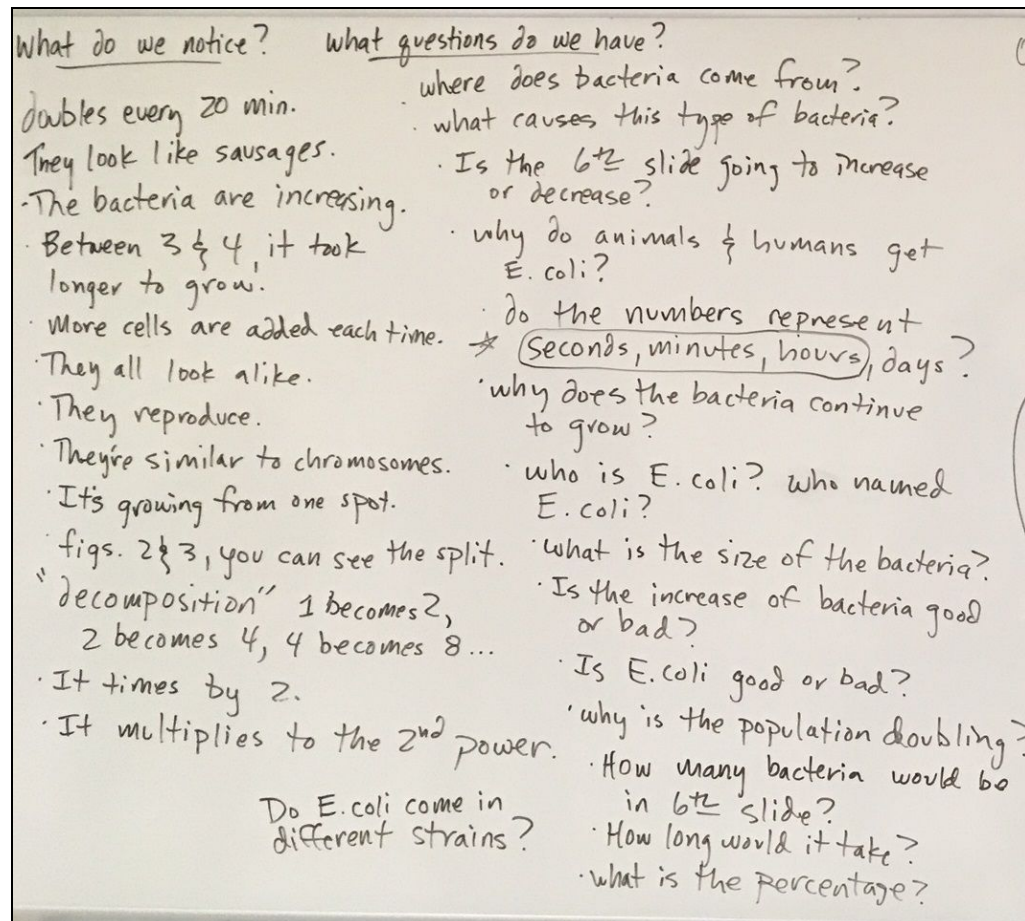 What do we notice?
doubles every 20 min.
They look like sausages.
-The bacteria are increasing.
· Between 3 & 4, it took
longer to grow.
· More cells are added each time.
· They all look alike.
· They reproduce.
· They're similar to chromosomes.
· It's growing from one spot.
· figs. 2 & 3, you can see the split.
"decomposition" 1 becomes 2,
2 becomes 4, 4 becomes 8...
· It times by 2.
· It multiplies to the 2nd power.
What questions do we have?
where does bacteria come from?
· what causes this type of bacteria?
· Is the 6th slide going to increase
or decrease?
· why do animals & humans get
E. coli?
· do the numbers represent
seconds, minutes, hours, days?
· why does the bacteria continue
to grow?
· who is E. coli? who named
E. coli?
· what is the size of the bacteria?
· Is the increase of bacteria good
or bad?
· Is E. coli good or bad?
· why is the population doubling?
· How many bacteria would be
in 6th slide?
· How long would it take?
· what is the percentage?
Do E. coli come in
different strains?